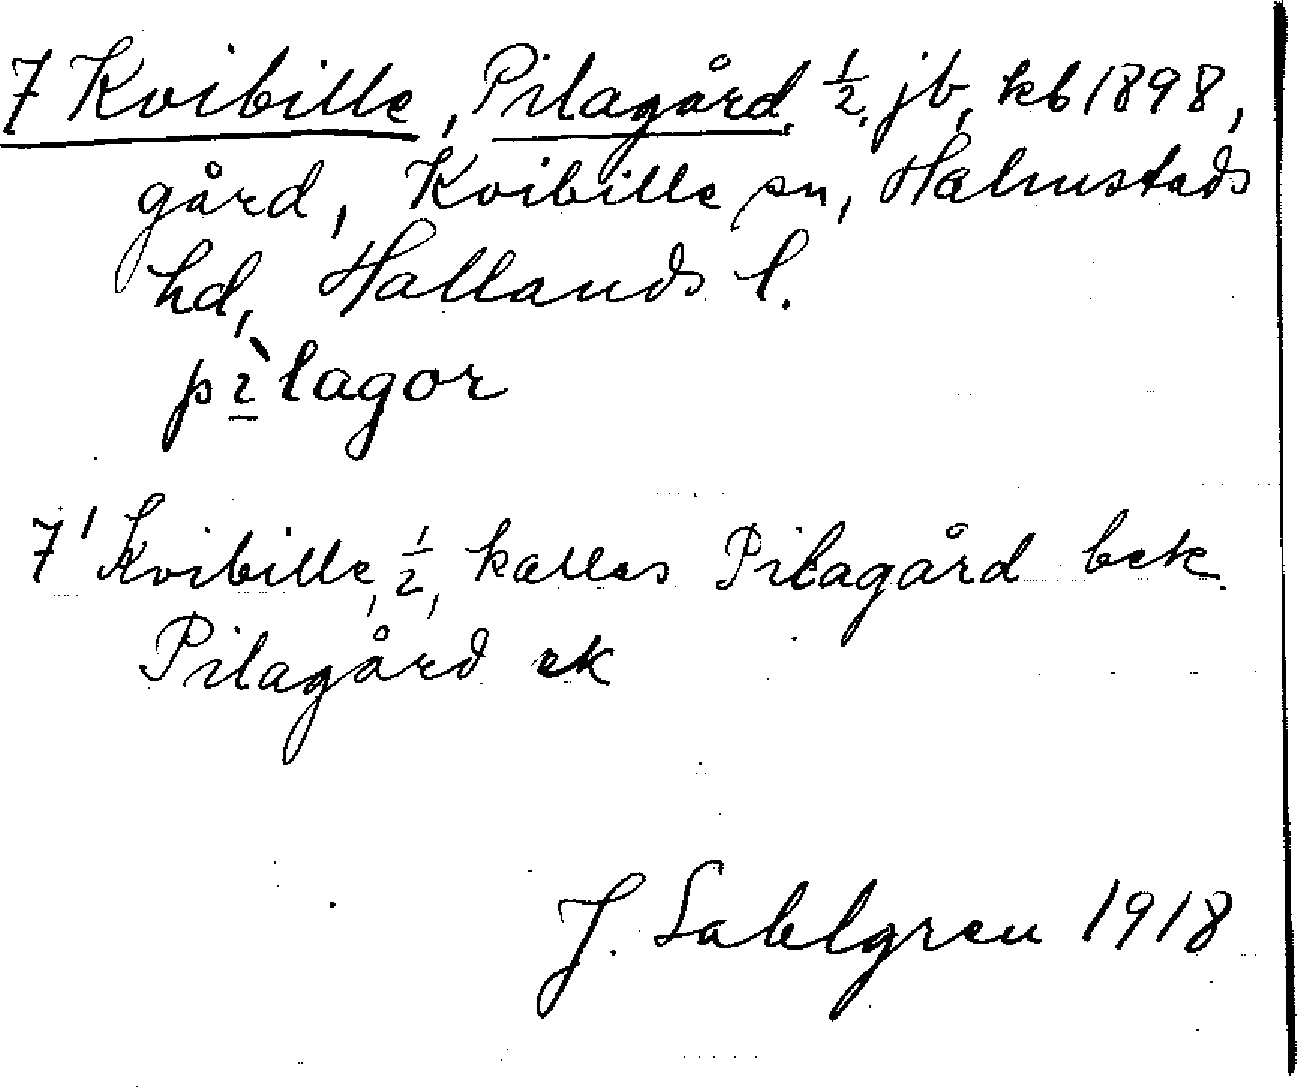 7 Kvibille, Pilagård, ½, jb, kb 1898,
gård, Kvibille sn, Halmstads
hd, Hallands l.
pìlagor
7¹ Kvibille, ½, kallas Pilagård bek.
Pilagård ek
J. Sahlgren 1918